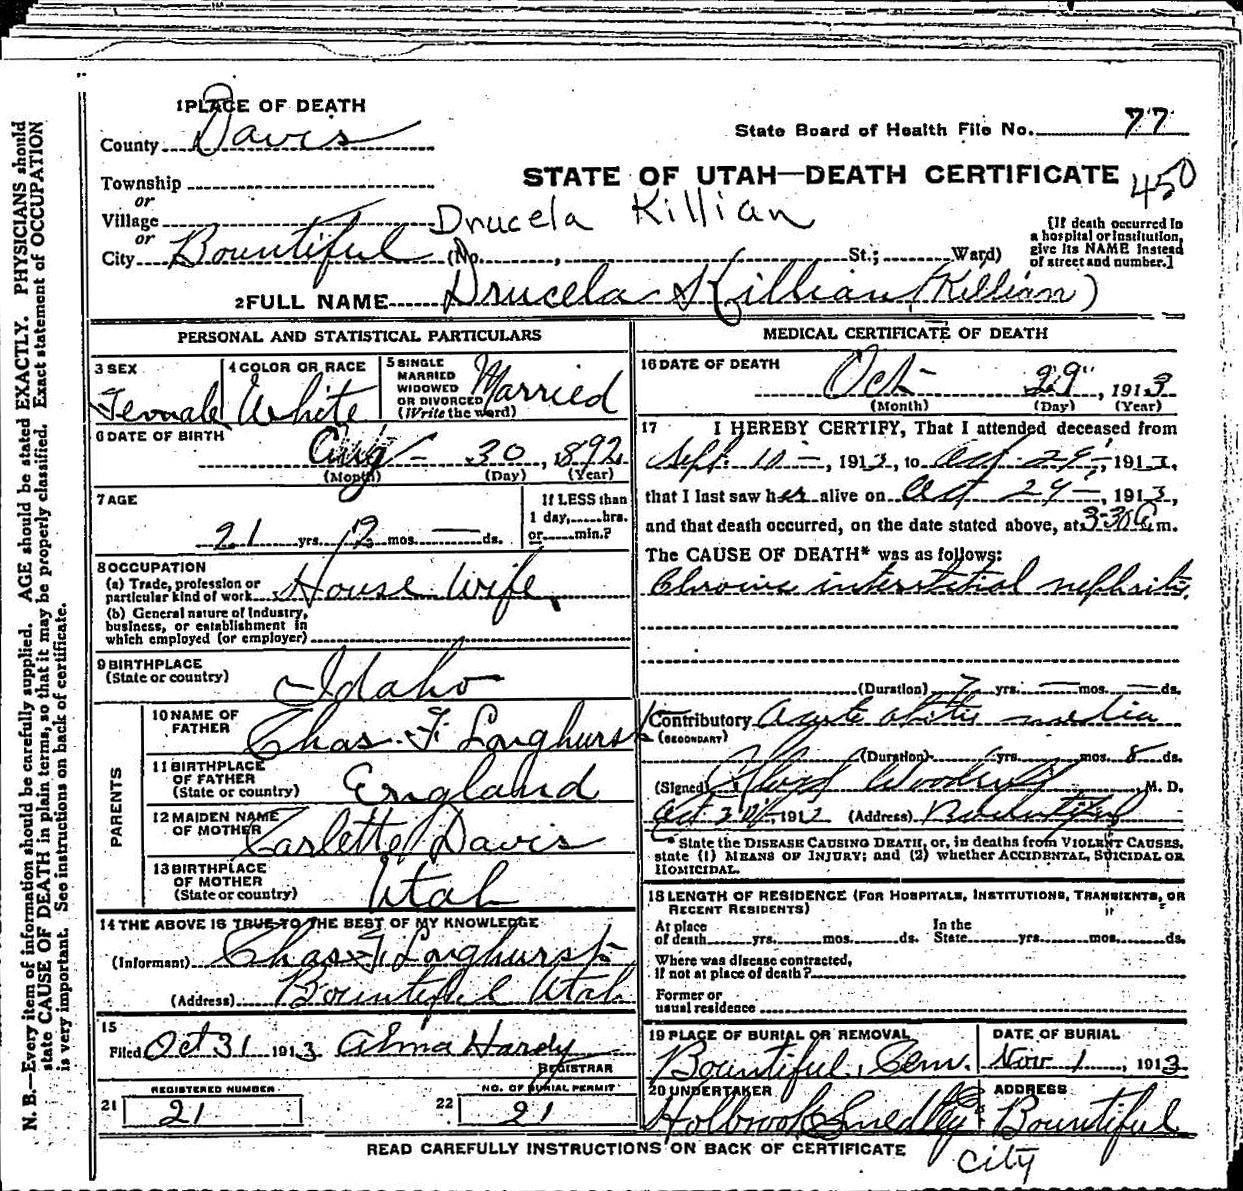 1 PLACE OF DEATH
County Davis
State Board of Health File No. 77
Township
STATE OF UTAH—DEATH CERTIFICATE 450
or
Village Drucela Killian
or
City Bountiful (No. , St.; Ward)
[If death occurred in a hospital or institution, give its NAME instead of street and number.]
2 FULL NAME Drucela Killian (Killian)
PERSONAL AND STATISTICAL PARTICULARS
3 SEX Female
4 COLOR OR RACE White
5 SINGLE MARRIED WIDOWED OR DIVORCED (Write the word) Married
6 DATE OF BIRTH
Aug 30, 1892
(Month) (Day) (Year)
7 AGE
21 yrs. 2 mos. — ds.
If LESS than 1 day, hrs. or min.?
8 OCCUPATION
(a) Trade, profession or particular kind of work House Wife
(b) General nature of Industry, business, or establishment in which employed (or employer)
9 BIRTHPLACE
(State or country) Idaho
PARENTS
10 NAME OF FATHER Chas. F. Longhurst
11 BIRTHPLACE OF FATHER (State or country) England
12 MAIDEN NAME OF MOTHER Tarlette Davis
13 BIRTHPLACE OF MOTHER (State or country) Utah
14 THE ABOVE IS TRUE TO THE BEST OF MY KNOWLEDGE
(Informant) Chas F. Longhurst
(Address) Bountiful Utah
15
Filed Oct 31 1913 Alma Hardy
REGISTRAR
REGISTERED NUMBER
21 21
NO. OF BURIAL PERMIT
22 21
MEDICAL CERTIFICATE OF DEATH
16 DATE OF DEATH
Oct 29, 1913
(Month) (Day) (Year)
17 I HEREBY CERTIFY, That I attended deceased from
Sept. 10 —, 1913, to Oct 29 —, 1913,
that I last saw her alive on Oct 29 —, 1913,
and that death occurred, on the date stated above, at 3-30 a m.
The CAUSE OF DEATH* was as follows:
Chronic interstitial nephritis
(Duration) 2 yrs. — mos. — ds.
Contributory Acute otitis media
(SECONDARY)
(Duration) yrs. mos. 8 ds.
(Signed) M. D.
Oct 1913 (Address) Bountiful
* State the DISEASE CAUSING DEATH, or, in deaths from VIOLENT CAUSES,
state (1) MEANS OF INJURY; and (2) whether ACCIDENTAL, SUICIDAL OR
HOMICIDAL.
18 LENGTH OF RESIDENCE (FOR HOSPITALS, INSTITUTIONS, TRANSIENTS, OR
RECENT RESIDENTS)
At place of death yrs. mos. ds. In the State yrs. mos. ds.
Where was disease contracted,
if not at place of death?
Former or
usual residence
19 PLACE OF BURIAL OR REMOVAL
Bountiful, Cem.
DATE OF BURIAL
Nov 1, 1913
20 UNDERTAKER
Holbrook & Smedley
ADDRESS
Bountiful
City
READ CAREFULLY INSTRUCTIONS ON BACK OF CERTIFICATE
N. B.—Every item of information should be carefully supplied. AGE should be stated EXACTLY. PHYSICIANS should
state CAUSE OF DEATH in plain terms, so that it may be properly classified. Exact statement of OCCUPATION
is very important. See instructions on back of certificate.